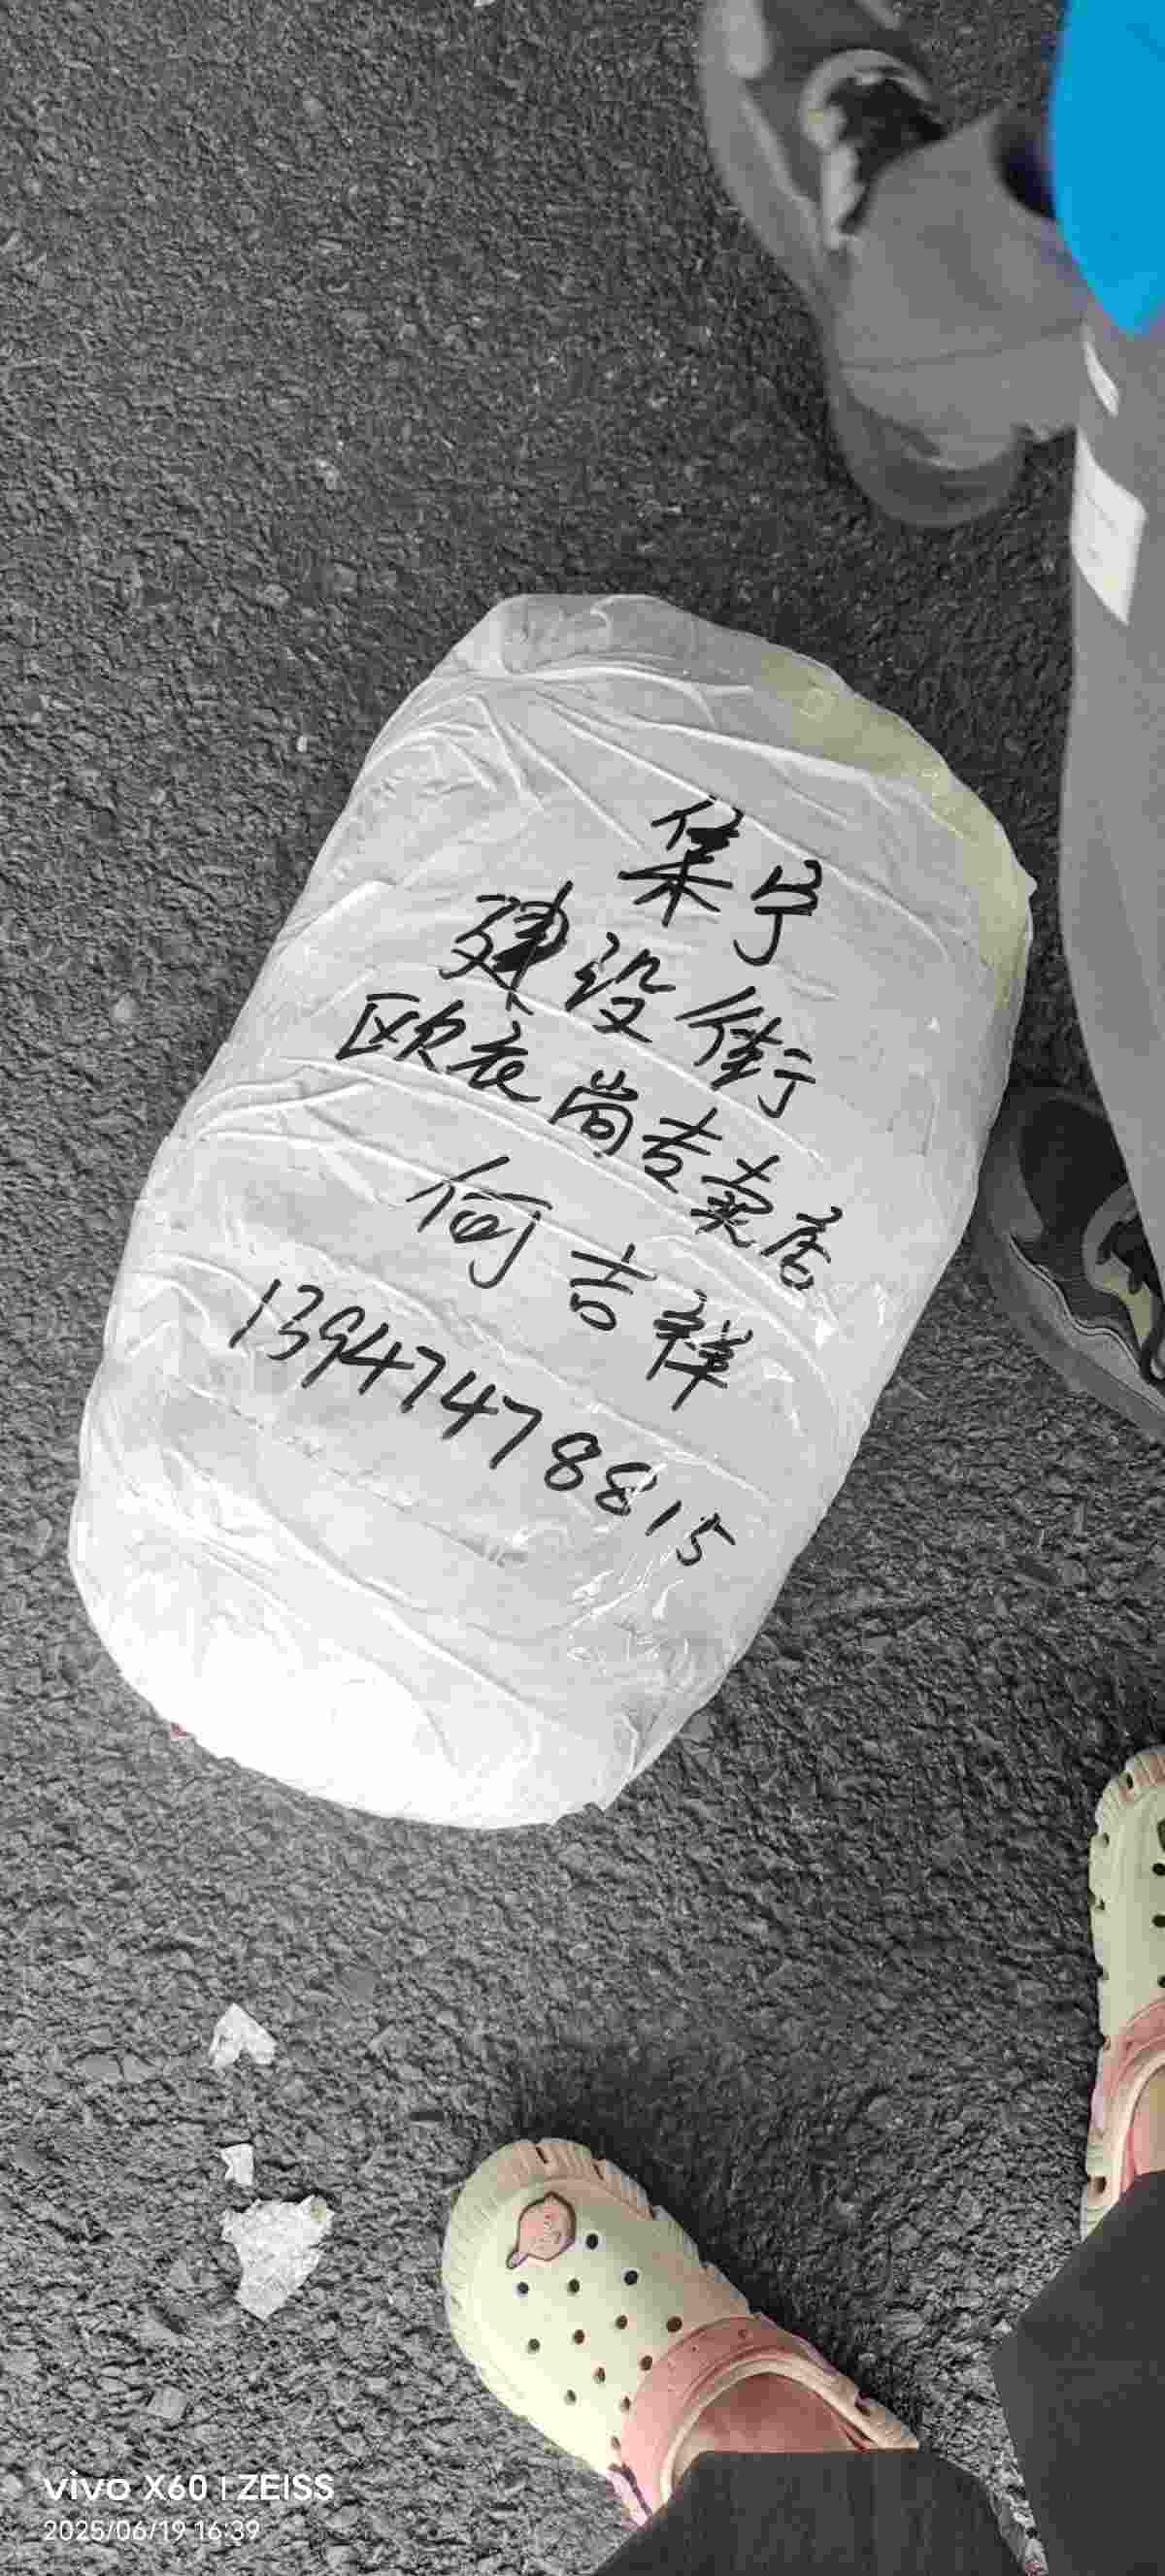 集宁
建设街
欧衣尚专卖店
何吉祥
13947478815
vivo X60 | ZEISS
2025/06/19 16:39